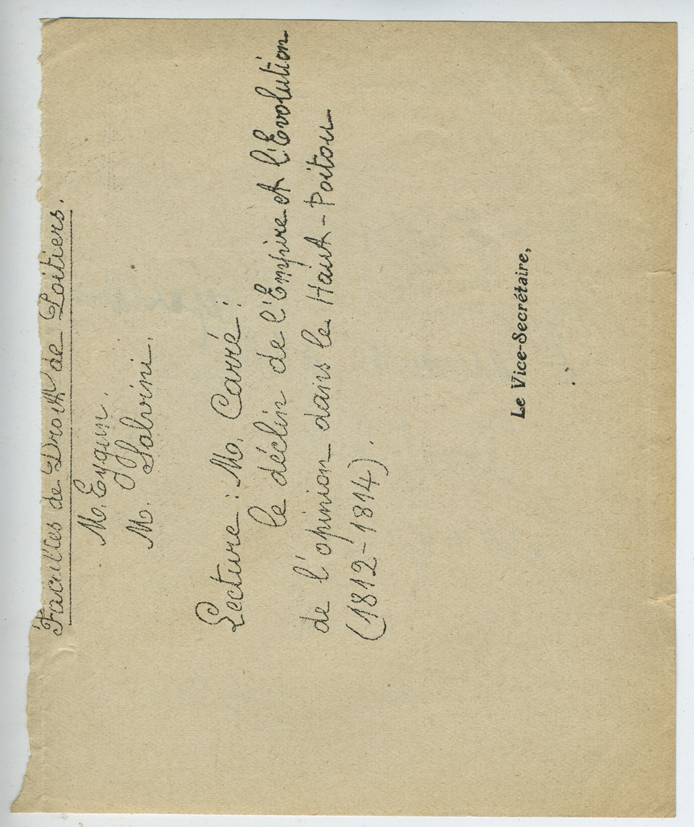 Facultés de Droit de Poitiers.
M. Eygun.
M. Salvini.
Lecture : M. Carré :
le déclin de l'Empire et l'Evolution
de l'opinion dans le Haut-Poitou
(1812-1814).
Le Vice-Secrétaire,